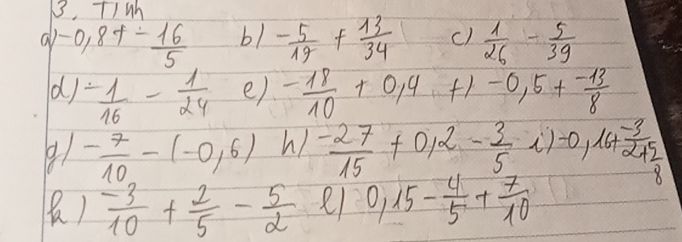 3. Tính
a) -0,8 + -16/5 b) -5/17 + 13/34 c) 1/26 - 5/39
d) -1/16 - 1/24 e) -18/10 + 0,4 f) -0,5 + -13/8
g) -7/10 - (-0,6) h) -27/15 + 0,2 - 3/5 i) -0,16 + -3/2 + 5/8
k) -3/10 + 2/5 - 5/2 l) 0,15 - 4/5 + 7/10